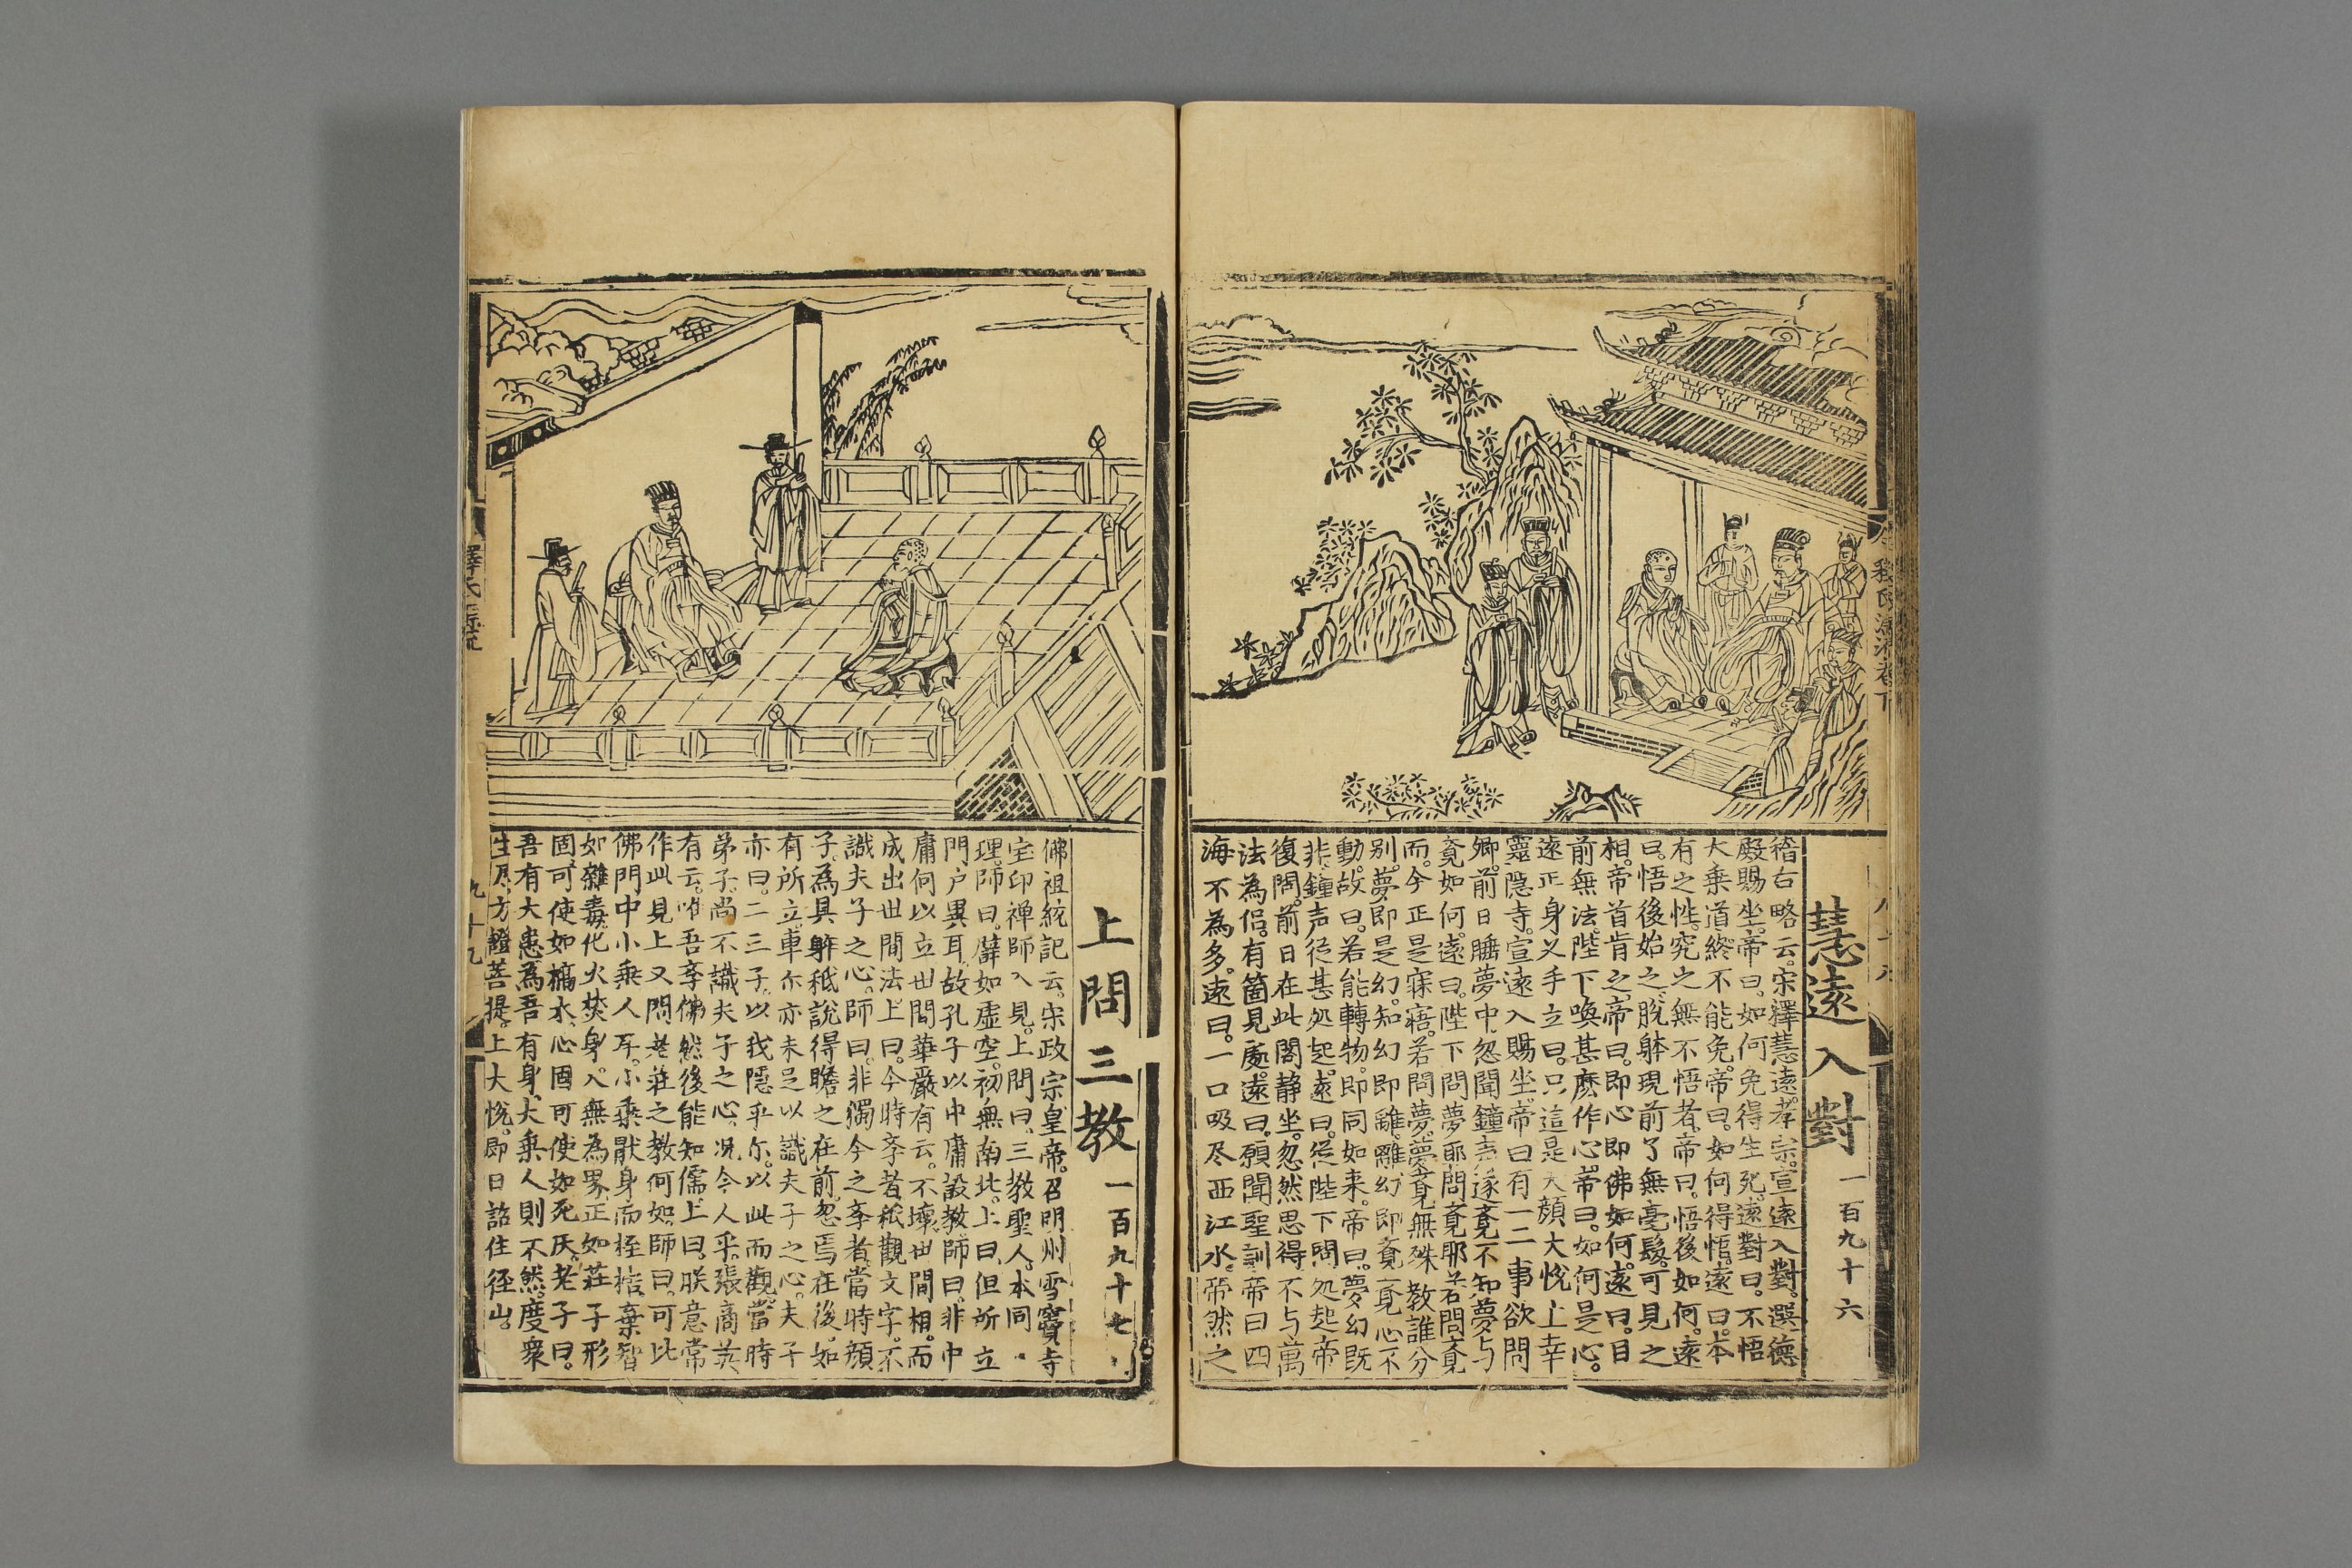 慧遠入對 一百九十六
稽古略云。宋釋慧遠。孝宗。宣遠入對。選德
殿。賜坐。帝曰。如何免得生死。遠對曰。不悟
大乘道。終不能免。帝曰。如何得悟。遠曰。本
有之性。究之無不悟者。帝曰。悟後如何。遠
曰。悟後始之。脫躰現前。了無毫髮。可見之
相。帝首肯之。帝曰。即心即佛如何。遠曰。目
前無法。陛下喚甚麽作心。帝曰。如何是心。
遠正身义手立曰。只這是天顔大悅上幸
靈隱寺。宣遠入賜坐。帝曰有一二事欲問
卿。前日睡夢中忽聞鐘声遂覔不知夢与
覔如何。遠曰。陛下問夢耶。問覔耶。若問覔
而。今正是寐寤。若問夢。夢覔無殊教誰分
别。夢即是幻。知幻即離。離幻即覔覔心不
動。故曰。若能轉物。即同如来。帝曰。夢幻既
非。鐘声從甚処起。遠曰。從陛下問処起帝
復問。前日在此閣静坐。忽然思得不与萬
法為侣。有箇見處。遠曰。願聞聖訓帝曰四
海不為多。遠曰。一口吸尽西江水。帝然之
釋氏源流卷下
上問三教 一百九十七
佛祖統記云。宋政宗皇帝。召明州雪竇寺
宝印禅師入見。上問曰。三教聖人。本同
理。師曰。譬如虚空。初無南北。上曰。但所立
門户異耳。故孔子以中庸設教師曰。非中
庸何以立世間。華嚴有云。不壞世間相。而
成出世間法。上曰。今時李者。秖觀文字。不
識夫子之心。師曰。非獨今之李者。當時顔
子。為具躰秖說得瞻之在前。忽焉在後。如
有所立。卓尔亦未足以識夫子之心。夫子
亦曰。二三子。以我隱乎尔。以此而觀。當時
弟子。尚不識夫子之心。况今人乎。張商英
有云。唯吾李佛然後能知儒。上曰。朕意常
作此見上又問老莊之教何如。師曰。可比
佛門中小乘人耳。小乘厭身而桎梏棄智
如雜毒。化火焚身。入無為界。正如莊子形
固可使如槁木。心固可使如死灰。老子曰。
吾有大患。為吾有身。大乘人則不然。度衆
生尽。方證菩提。上大悅。即日詔住径山。
釋氏源流
九十九